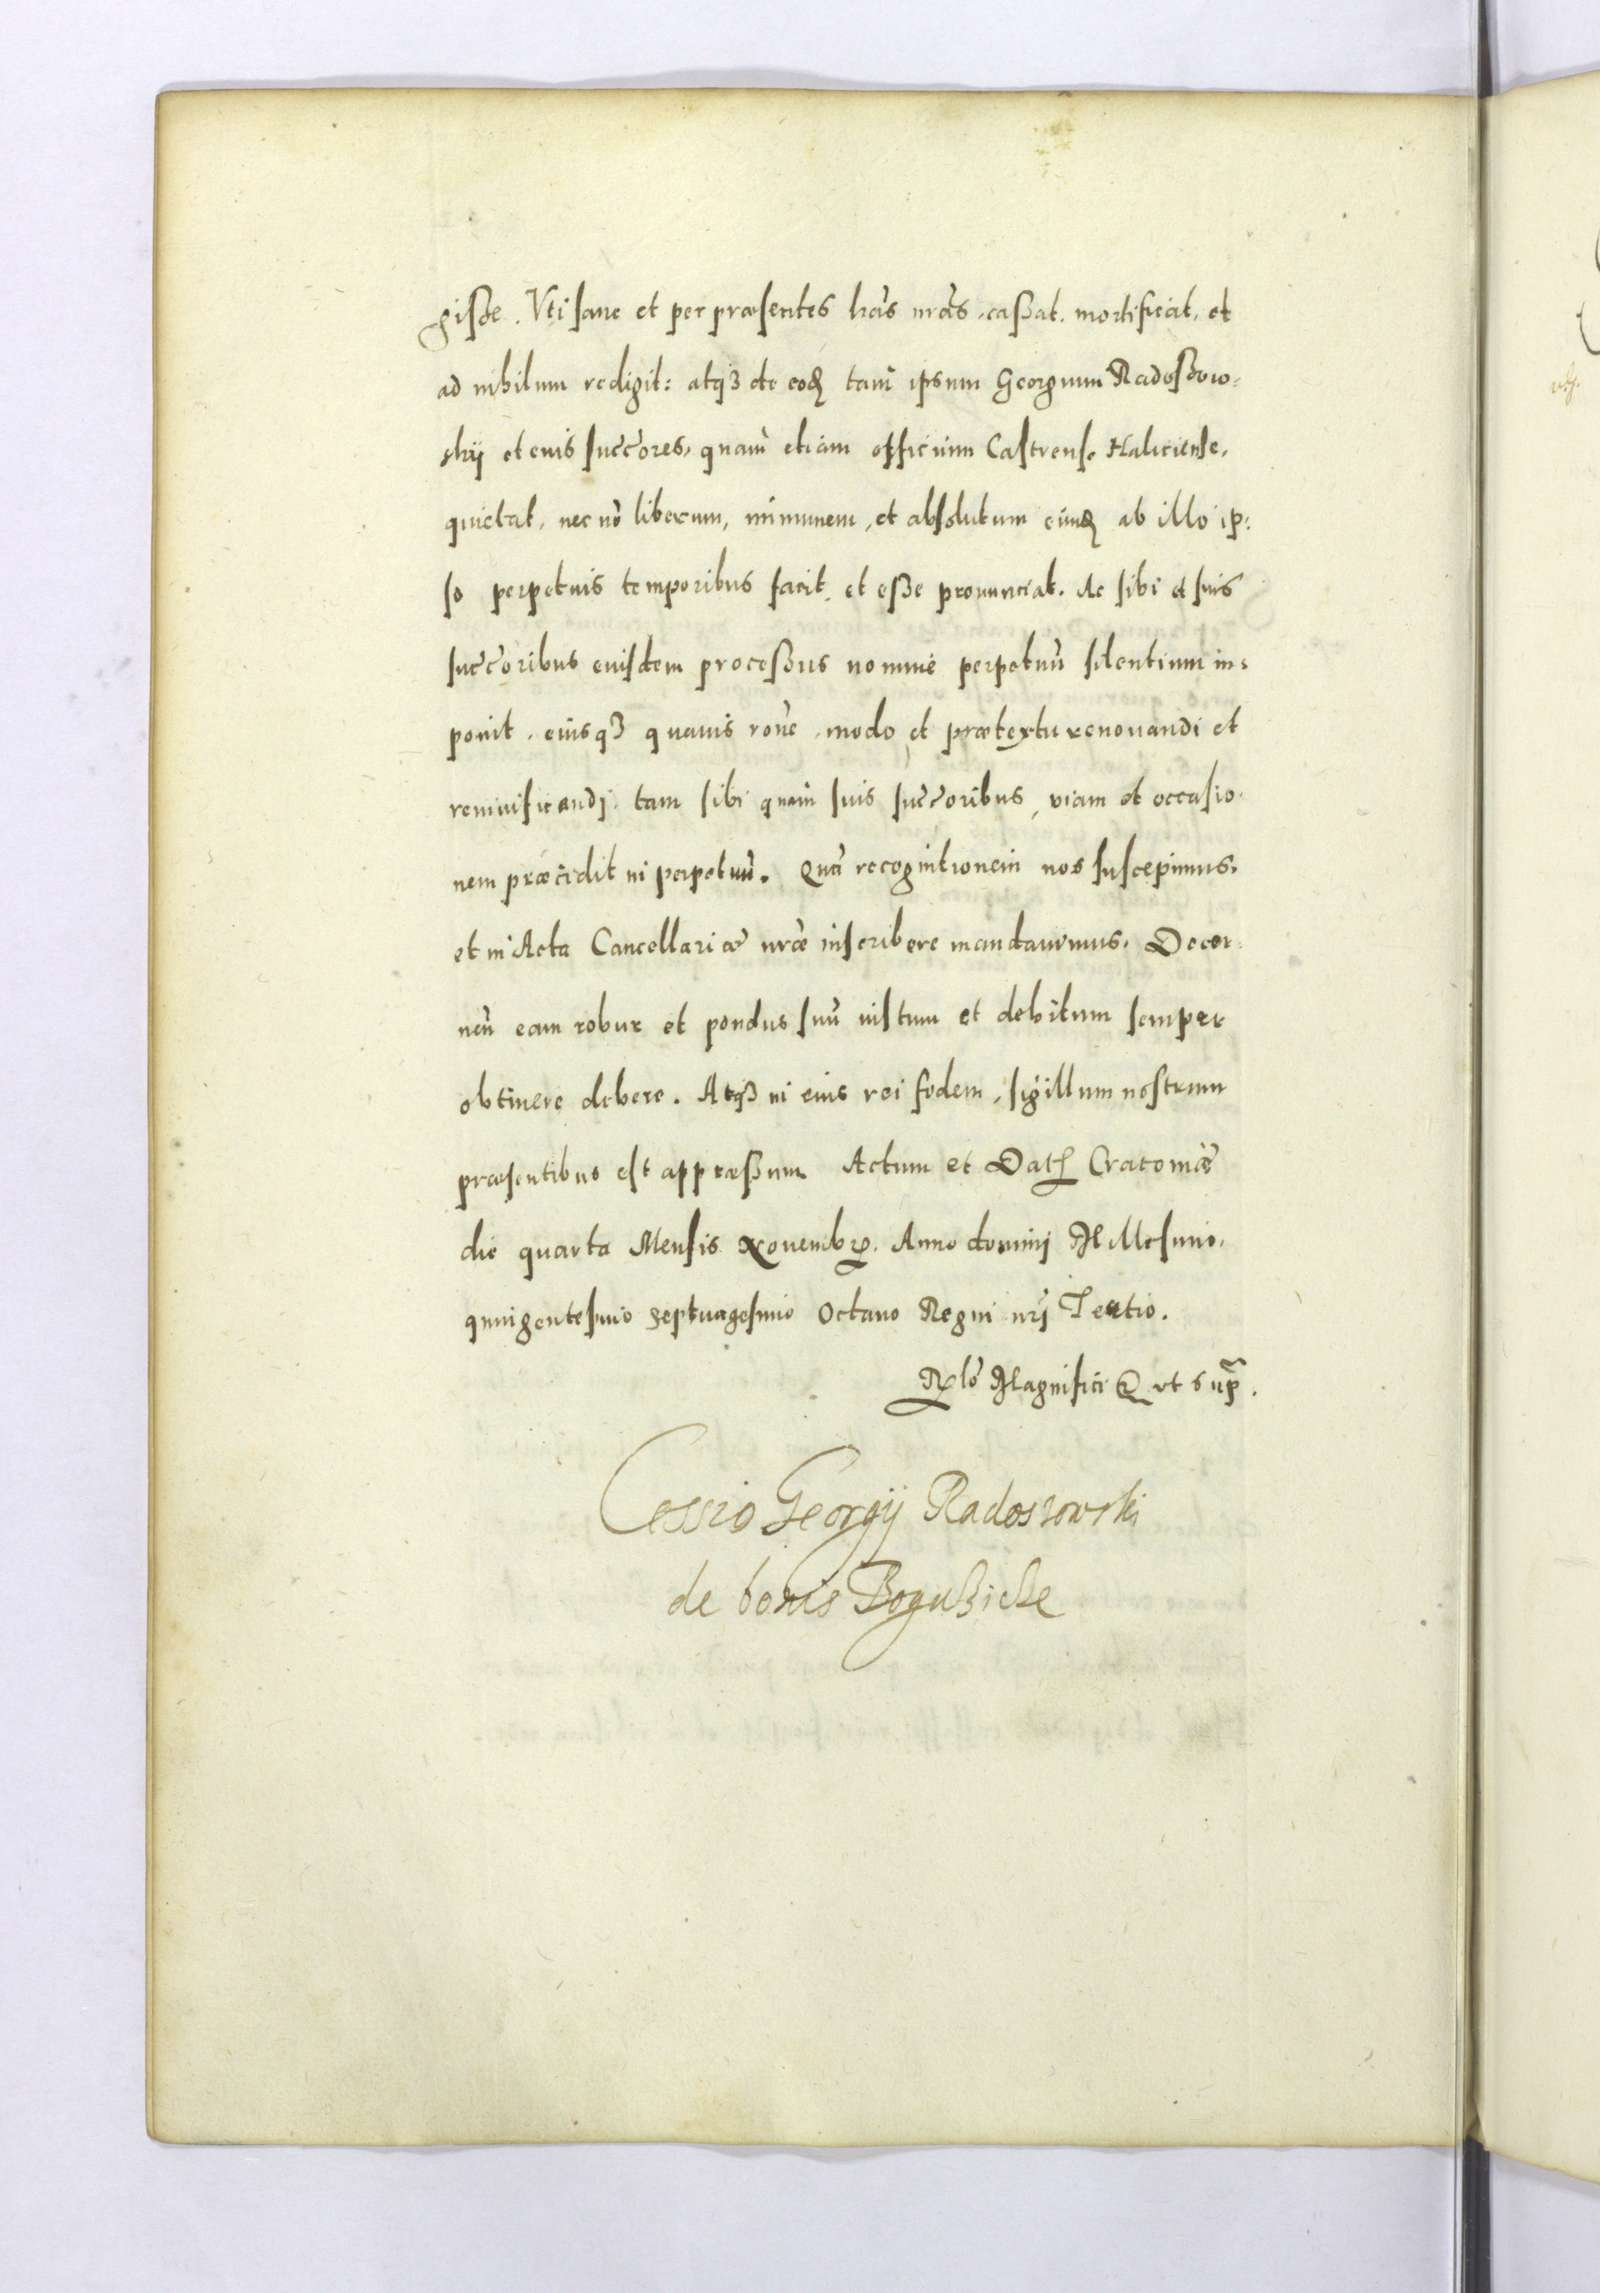 gisse. Vti sane et per præsentes lrãs nrãs, cassat, mortificat, et
ad nihilum redigit: atq3 de eod tam ipsum Georgium Radossow=
skÿ et euis succores, quam etiam officium Castrense Haliciense,
quietat, nec nõ liberum, immunem, et absolutum eund ab illo ip:
so perpetuis temporibus facit, et esse pronunciat. Ac sibi et suis
succoribus euisdem processus nomine perpetuũ silentium im=
ponit, eiusq3 quauis rõne, modo, et prætextu renouandi et
reuiuificandi, tam sibi quam suis succoribus, viam et occasio-
nem præcidit in perpetuũ. Quã recognitionem nos suscepimus,
et in Acta Cancellariæ nræ inscribere mandauimus. Decer-
neñ eam robur et pondus suũ iustum et debitum semper
obtinere debere. Atq3 in eius rei fidem, sigillum nostrum
præsentibus est appressum Actum et Dat Cracouiæ
die quarta Mensis Nouembr. Anno domini Millesimo,
quingentesimo septuagesimo Octauo Regni nri Tertio.
Rlõ Magnifici & vt supr.
Cessio Georgij Radossowski
de bonis Bogussicze